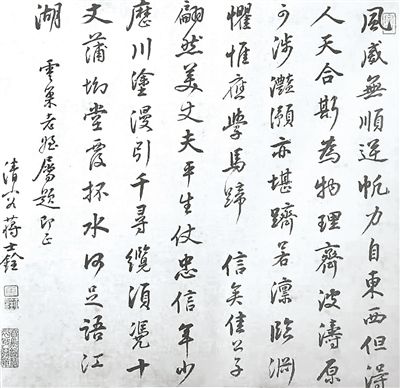 風感無順逆帆力自東西但得
人天合斯為物理齊波濤原
可涉灩澦亦堪躋若凜臨淵
懼惟應學馬蹄 信矣佳公子
翩然美丈夫平生仗忠信年少
歷川塗漫引千尋纜須憑十
丈蒲坳堂覆杯水何足語江
湖 雲巢老姪屬題即正
清容蔣士銓